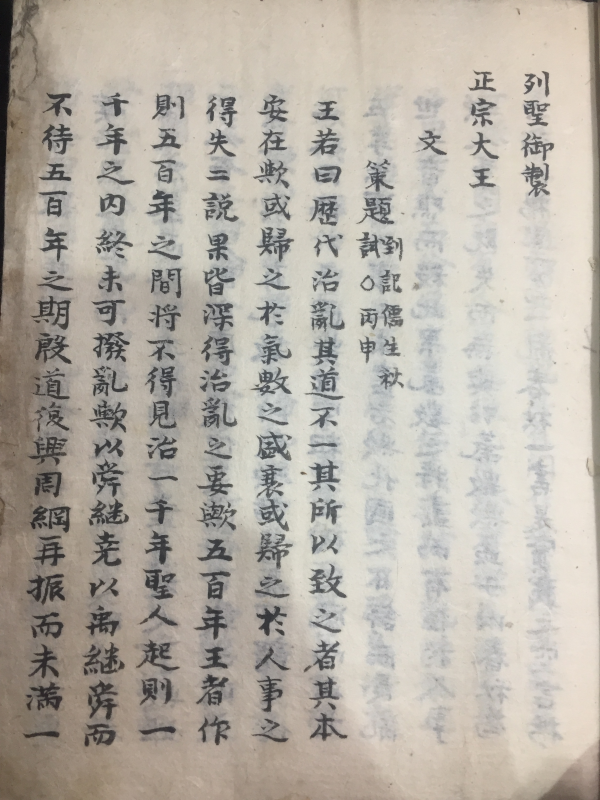 列聖御製
正宗大王
文
策題 到記儒生秋試○丙申
王若曰歷代治亂其道不一其所以致之者其本
安在歟或歸之於氣數之盛衰或歸之於人事之
得失二說果皆深得治亂之要歟五百年王者作
則五百年之間將不得見治一千年聖人起則一
千年之內終未可撥亂歟以舜繼堯以禹繼舜而
不待五百年之期殷道復興周綱再振而未滿一